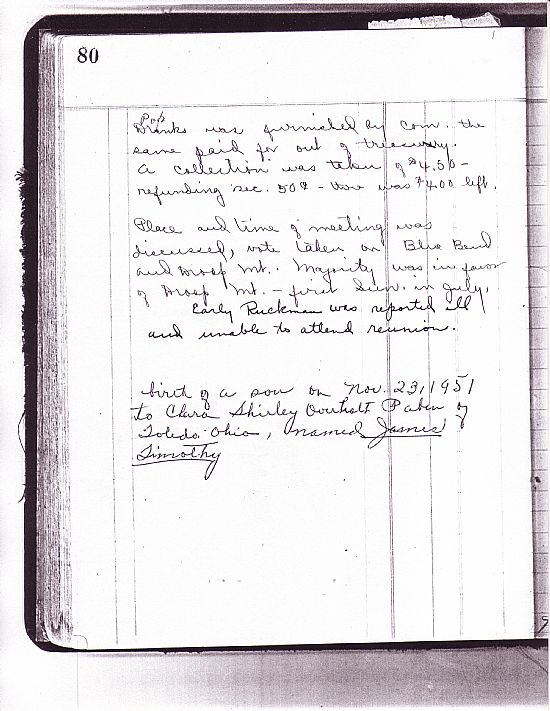 80
Pop
Drinks was furnished by com. the
same paid for out of treasury.
A collection was taken of $4.50 -
refunding sec. 50¢ - there was $4.00 left.
Place and time of meeting was
discussed, vote taken on Blue Bend
and Droop Mt. Majority was in favor
of Droop Mt. - first Sun. in July.
Early Ruckman was reported ill
and unable to attend reunion.
birth of a son on Nov. 23, 1951
to Clara Shirley Overholt of
Toledo Ohio, named James
Timothy